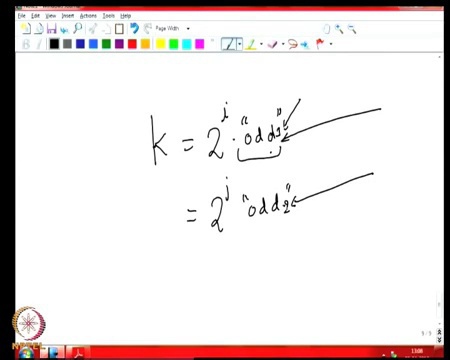 File Edit View Insert Actions Tools Help
Page Width
k = 2^i · "odd1"
= 2^j "odd2"
5/5
NPTEL
13:08